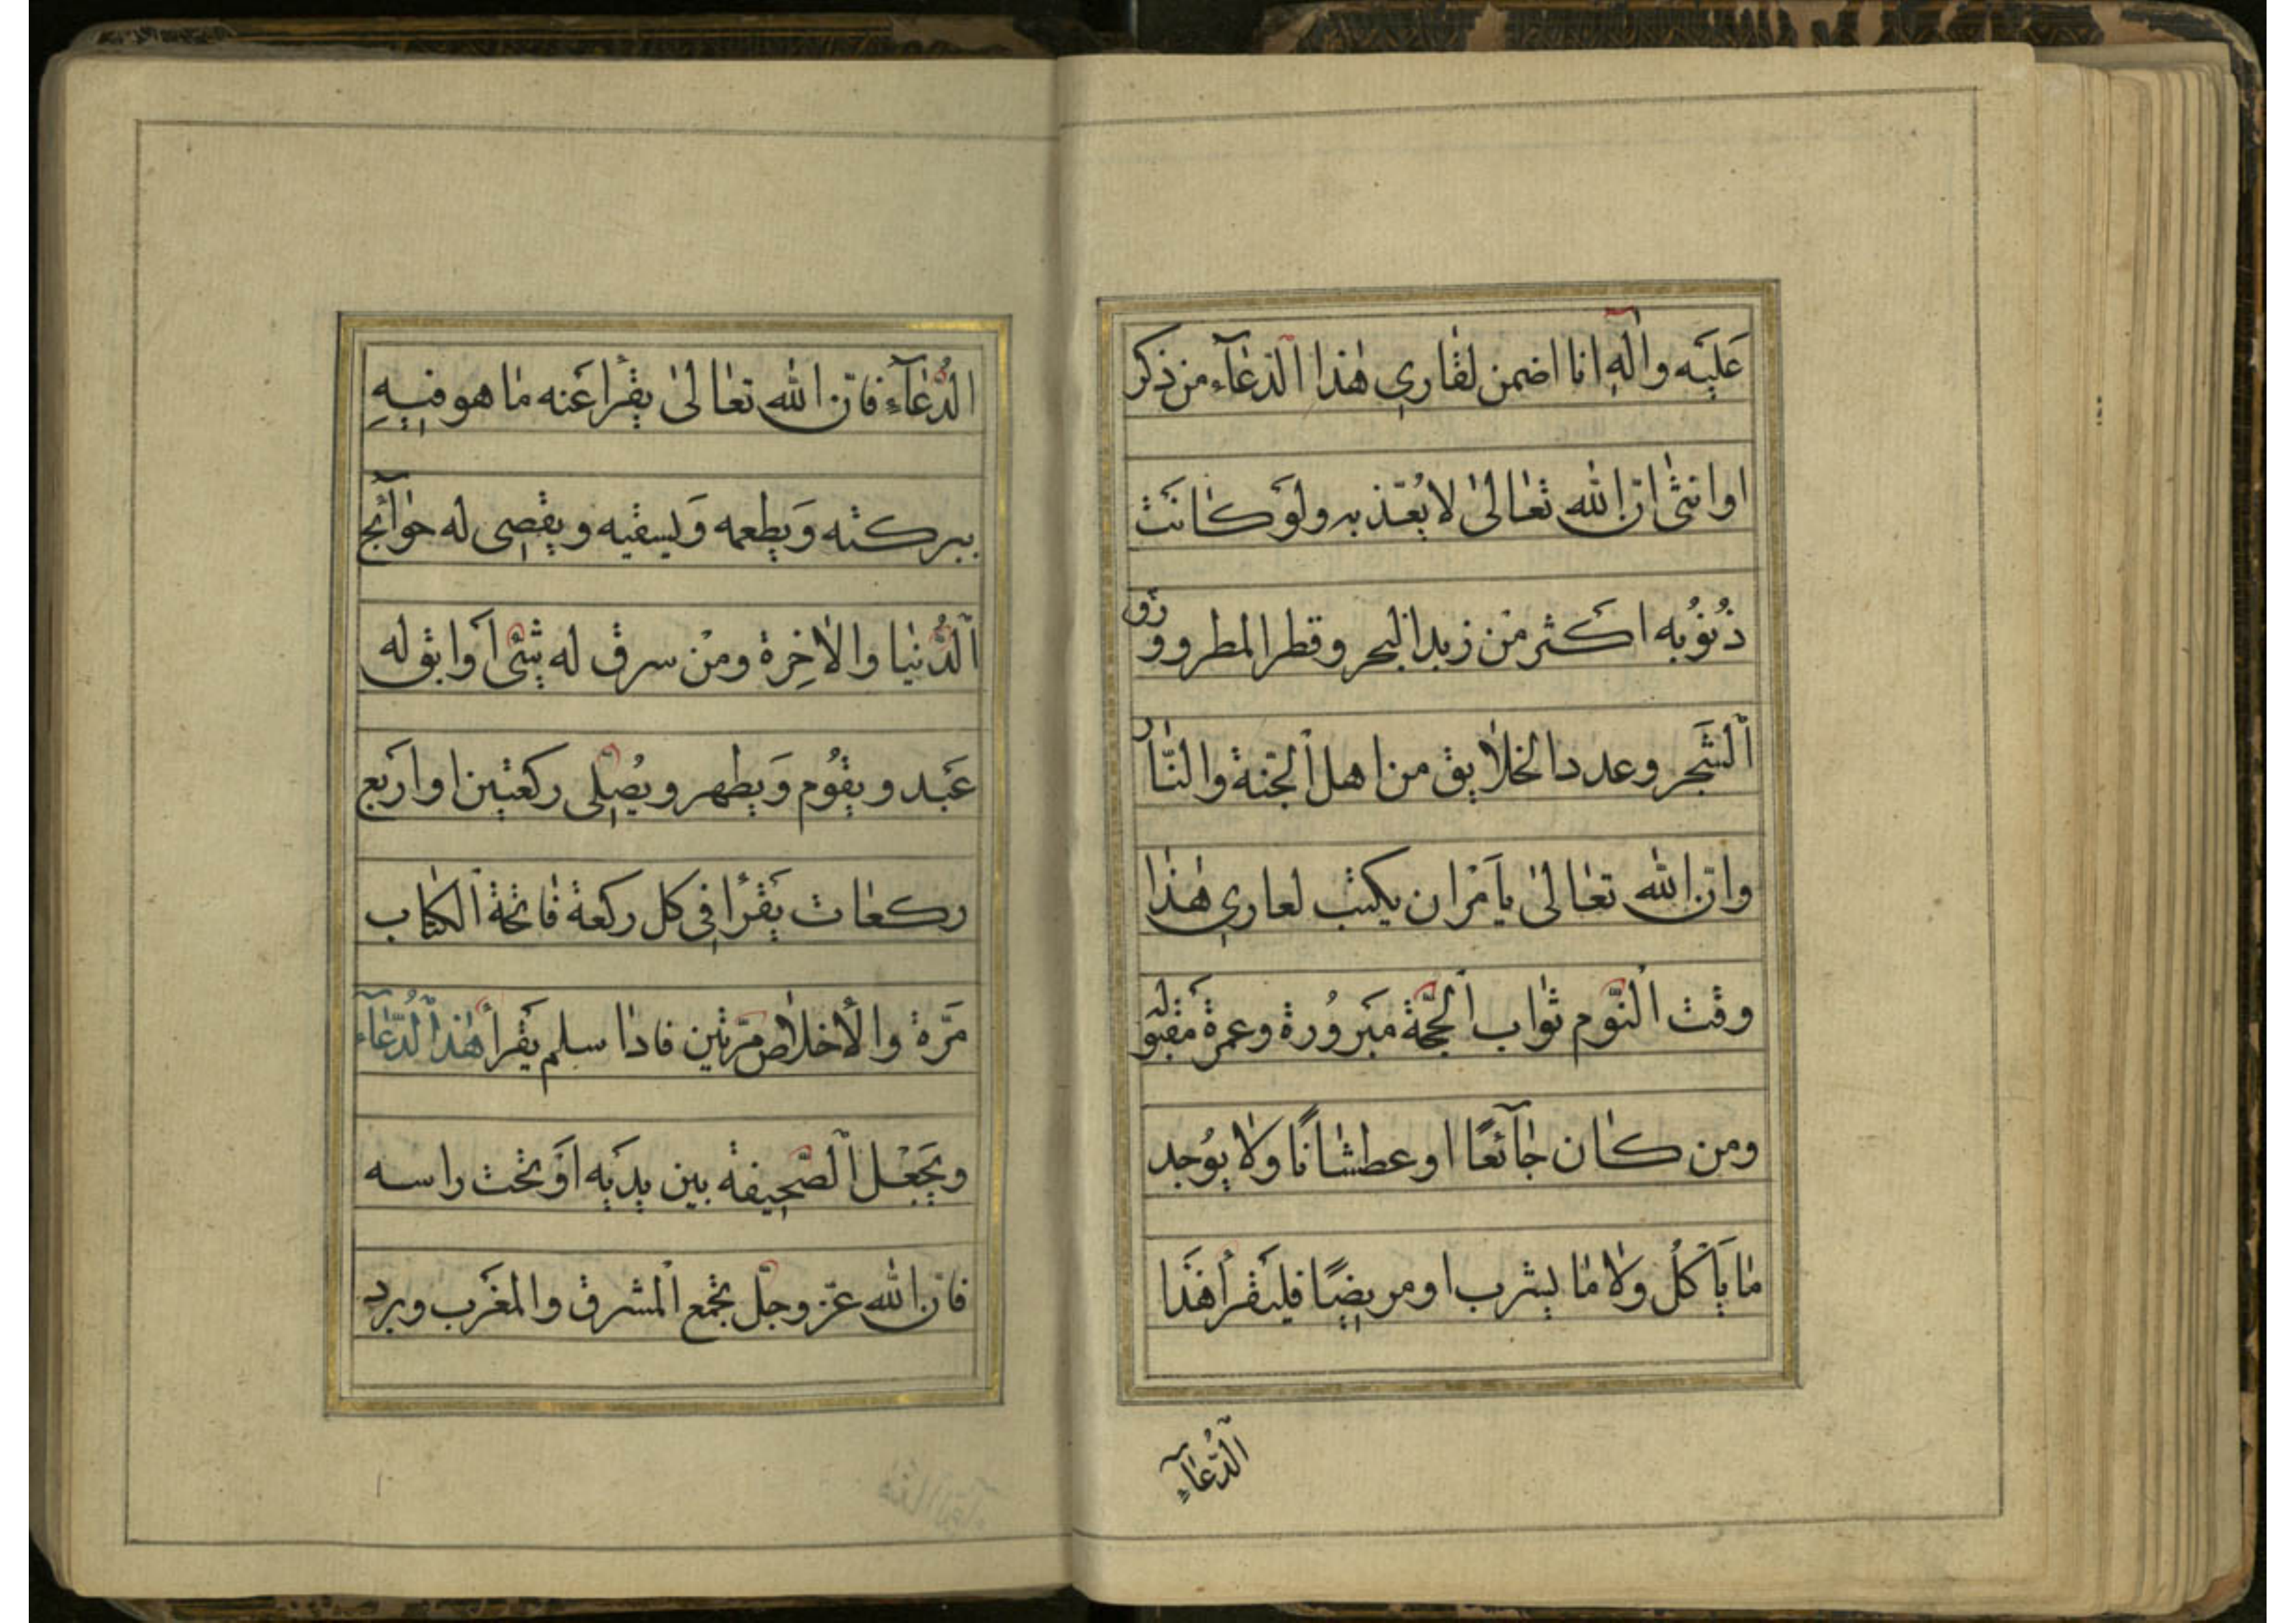 عَلَيْه واٰلهٖ انا اضمن لقٰاري هٰذا الّدعٰآء من ذكر
او انثىٰ انّ الله تعٰالىٰ لا يُعّذبه ولَو كٰانَت
ذُنُوبه اكَثر مْن زبد البحر وقطر المطر و ورق
الشَّجر وعدد الخلاٰيق من اهل الجّنة والنّٰار
وانّ الله تعٰالىٰ يأمَرْ ان يكتب لعاري هٰذا
وقت النَّوم ثوٰاب الحَّجة مَبرُورة وعمرة مَقبَولة
ومن كٰان جٰآئعًا او عطشٰانًا ولاٰ يوُجد
مٰا يَأكلُ ولاٰ مٰا يشرب او مريضًا فليَقرأ هَذا
الدُّعٰآءِ
الدُّعٰآءِ فانّ الله تعٰالىٰ يقرأ عَنه مٰا هو فيهِ
ببركته وَيطعمه وَيسقيه ويقصى له حوٰآئج
الدُّنيٰا والاٰخِرة ومْن سرق له شئ اَو ابق له
عَبد ويقوُم وَيطهر ويصُلّى ركعتين او اَربع
ركعٰات يَقرأ في كل ركعة فٰاتحة الكتٰاب
مَّرة والأخلاٰص مّرتين فاذٰا سلم يَقرأ هٰذا الدُّعٰآء
ويَجْعَل الصَّحيفة بين يدَيه اوَ تحت راسه
فانّ الله عّز وجلّ يجمع المشرق والمغَرب ويرد